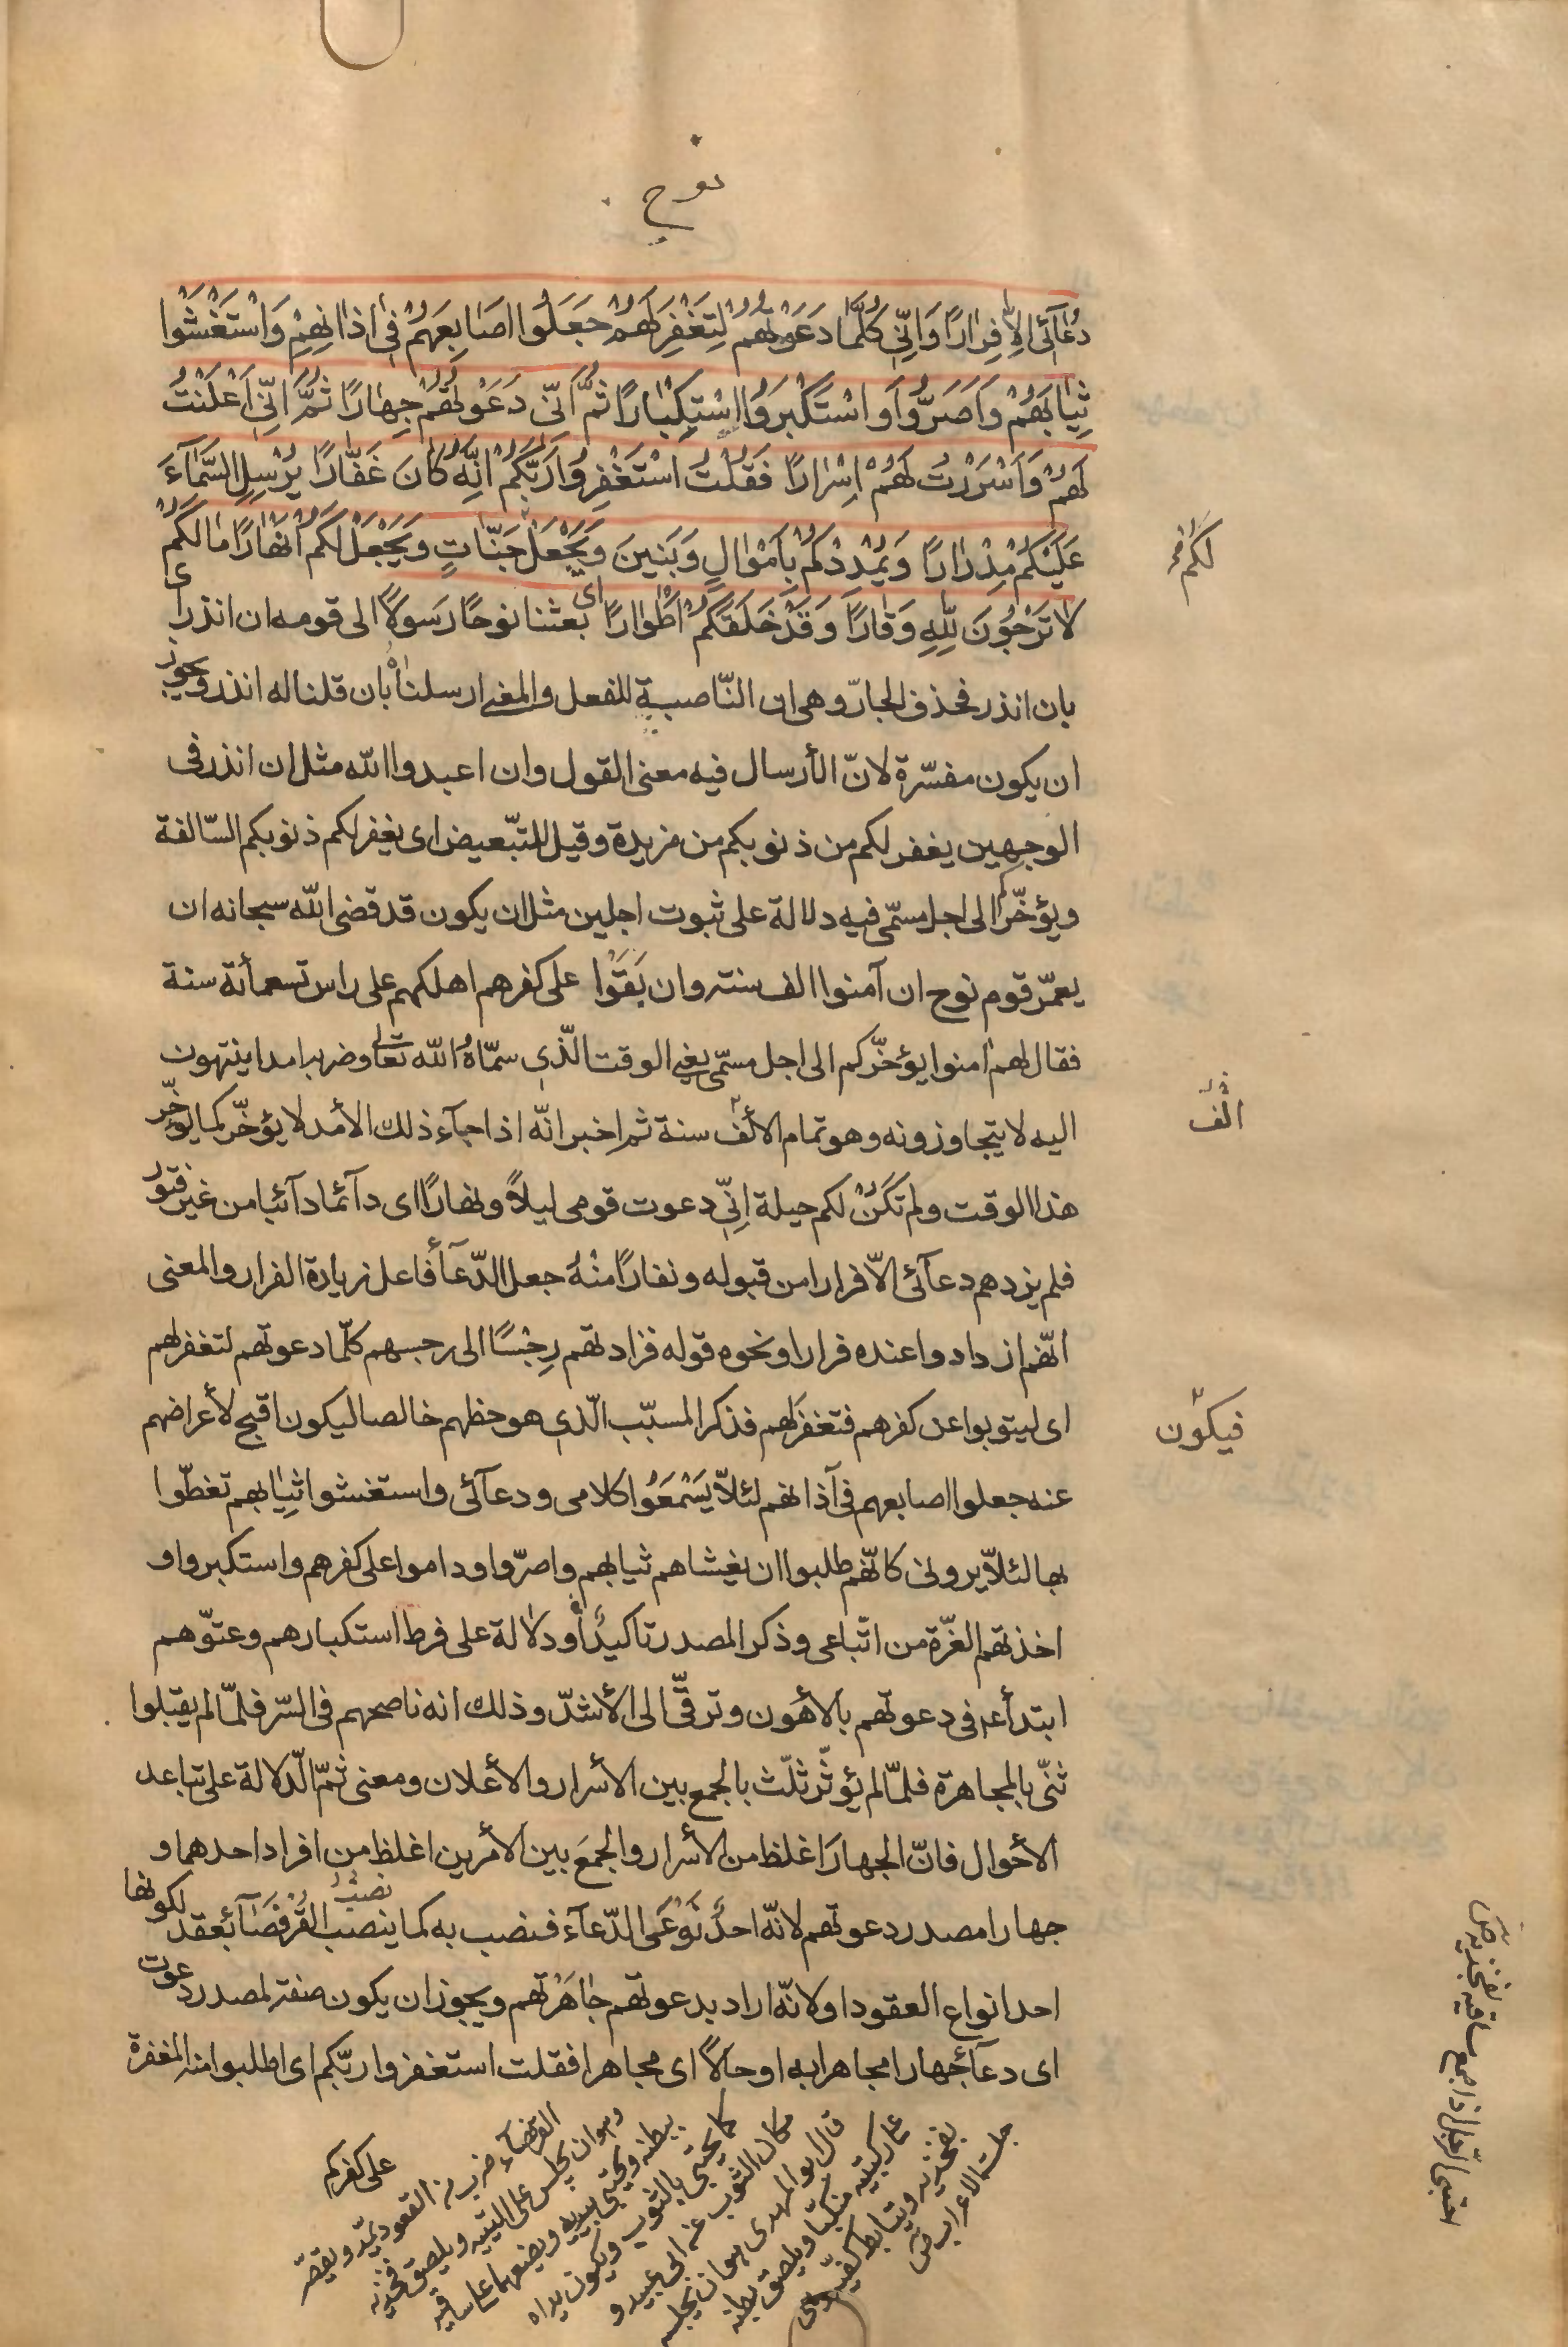 نوح
دُعَآئى اِلاّ فِرٰارًا وَاِنّى كُلَّمٰا دَعَوْتُهُمْ لِتَغْفِرَ لَهُمْ جَعَلُوا اصَابِعَهُمْ فى اذٰانِهِمْ وَاسْتَغْشَوْا
ثِيٰابَهُمْ وَاَصَرُّوا وَاسْتَكْبَرُوا اسْتِكْبٰارًا ثُمَّ اِنّى دَعَوْتُهُمْ جِهٰارًا ثُمَّ اِنّى اَعْلَنْتُ
لَهُمْ وَاَسْرَرْتُ لَهُمْ اِسْرٰارًا فَقُلْتُ اسْتَغْفِرُوا رَبَّكُمْ اِنَّهُ كٰانَ غَفّٰارًا يُرْسِلِ السَّمٰآءَ
عَلَيْكُمْ مِدْرٰارًا وَيُمْدِدْكُمْ بِاَمْوٰالٍ وَبَنينَ وَيَجْعَلْ جَنّٰاتٍ وَيَجْعَلْ لَكُمْ اَنْهٰارًا مٰا لَكُمْ
لَكُمْ
لاٰ تَرْجُونَ لِلّٰهِ وَقٰارًا وَقَدْ خَلَقَكُمْ اَطْوٰارًا اى بعثنا نوحًا رَسولاً الى قومه ان انذر اى
بان انذر فحذف الجارّ وهى ان النّاصبة للفعل والمعنى ارسلناهُ بان قلنا له انذر ويجوز
ان يكون مفسّرة لانّ الأرسال فيه معنى القول وان اعبدوا اللّه مثل ان انذر فى
الوجهين يغفر لكم من ذنوبكم من مزيدة وقيل للتّبعيض اى يغفر لكم ذنوبكم السّالفة
ويؤخّركم الى اجل مسمّى فيه دلالة على ثبوت اجلين مثل ان يكون قد قضى اللّه سبحانه ان
يعمّر قوم نوح ان آمنوا الف سنة وان بَقَوْا على كفرهم اهلكهم على راس تسعمأئة سنة
فقال لهم امنوا يؤخّركم الى اجل مسمّى يعنى الوقت الّذى سمّاهُ اللّه تعالى وضربه امدا ينتهون
اليه لا يتجاوزونه وهو تمام الألف سنة ثم اخبر انّه اذا جآء ذلك الأمد لا يؤخّر كما يؤخّر
الف
هذا الوقت ولم تكَنْ لكم حيلة اِنّى دعوت قومى ليلاً ونهارًا اى دآئما دآئبا من غير فتور
فلم يزدهم دعآئى الاّ فرارا من قبوله ونفارًا منْهُ جعل الدّعآء فاعل زيادة الفرار والمعنى
انّهم ازدادوا عنده فرارا ونحوه قوله فزادتهم رِجْسًا الى رجسهم كلّما دعوتهم لتغفر لهم
اى ليتوبوا عن كفرهم فتغفر لهم فذكر المسبّب الّذى هو حظهم خالصا ليكون اقبح لأعراضهم
فيكون
عنه جعلوا اصابعهم فى آذانهم لئلاّ يَسْمَعُوا كلامى ودعآئى واستغشوا ثيابهم تغطّوا
بها لئلاّ يرونى كانّهم طلبوا ان يغشاهم ثيابهم واصرّوا وداموا على كفرهم واستكبروا و
اخذتهم الغرّة من اتّباعى وذكر المصدر تاكيدًا ودلالة على فرط استكبارهم وعتوّهم
ابتدأ عم فى دعوتهم بالأهون وترقّى الى الأشدّ وذلك انه ناصحهم فى السّر فلمّا لم يقبلوا
ثنّى بالمجاهرة فلمّا لم يؤثّر ثلّث بالجمع بين الأسرار والأعلان ومعنى ثمّ الدّلالة على تباعد
الأحوال فانّ الجهارَ اغلظ من الأسرار والجمعَ بين الأمرين اغلظ من افراد احدهما و
جهارا مصدر دعوتهم لانّه احدُ نَوْعَى الدّعآء فنصب به كما ينصب نصبُ القُرْفصَآء بقعد لكونها
احد انواع العقود او لانّه اراد بدعوتهم جٰاهَرْتهم ويجوز ان يكون صفة لمصدر دعوت
اى دعآءً جهارا مجاهرا به او حالاً اى مجاهرا فقلت استغفروا ربّكم اى اطلبوا منه المغفرة
على كفركم
القرفصآء ضرب من القعود يمدّ ويقصّر
وهو ان يجلس على اليتيه ويلصق فخذيه
ببطنه ويحتبى بيديه ويضعهما على ساقيه
كما يحتبى بالثوب ويكون يداه
مكان الثوب عن ابى عبيد و
قال ابو المهدى هو ان يجلس
على ركبتيه منكبّا ويلصق بطنه
بفخذيه ويتابط كفيه وهى
جلسة الاعراب
احتبى الرجل اذا جمع ساقيه بفخذيه